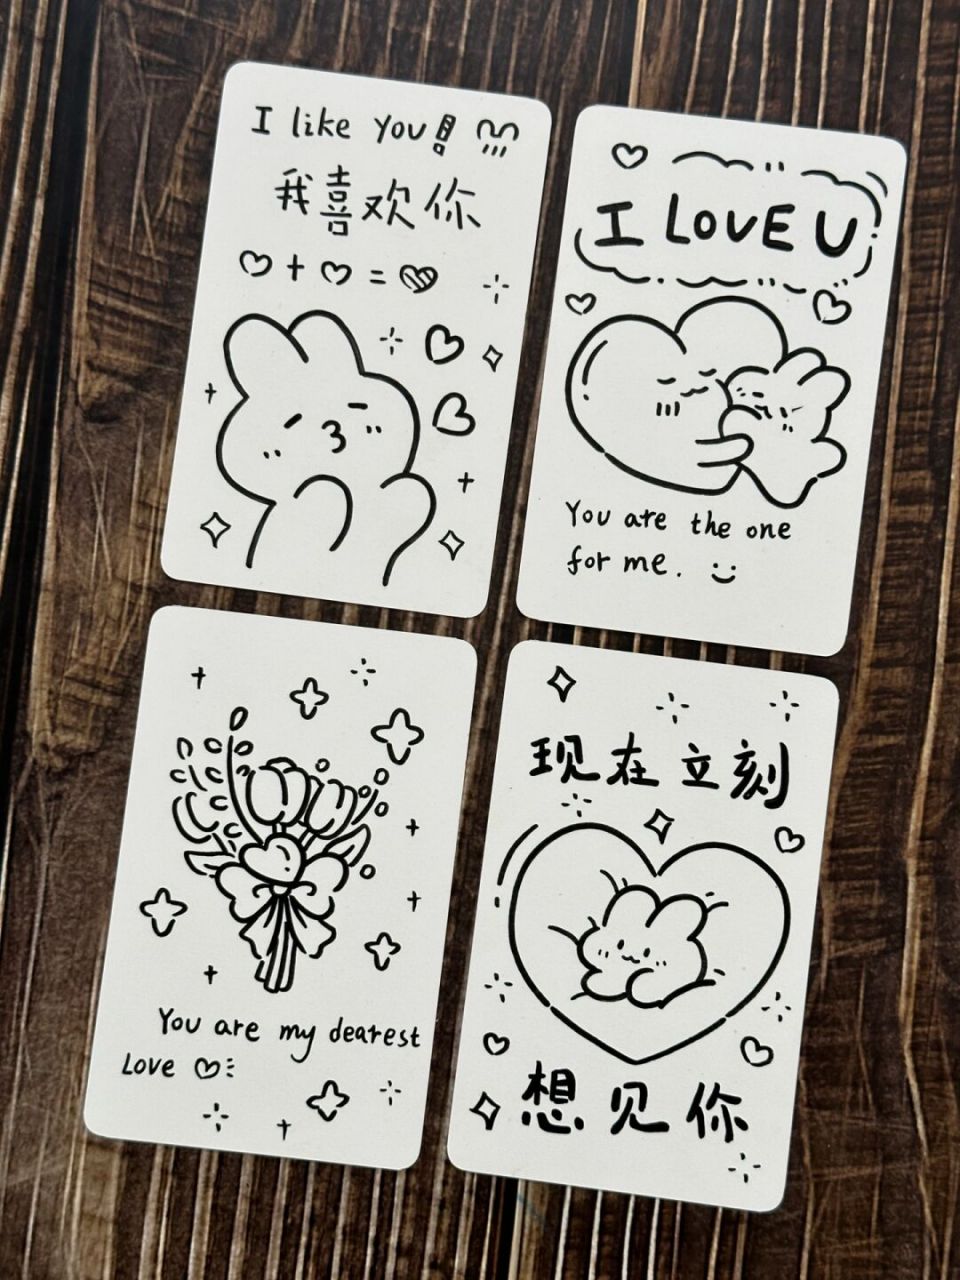 I like you!
我喜欢你
I LOVE U
You are the one
for me.
You are my dearest
Love
现在立刻
想见你